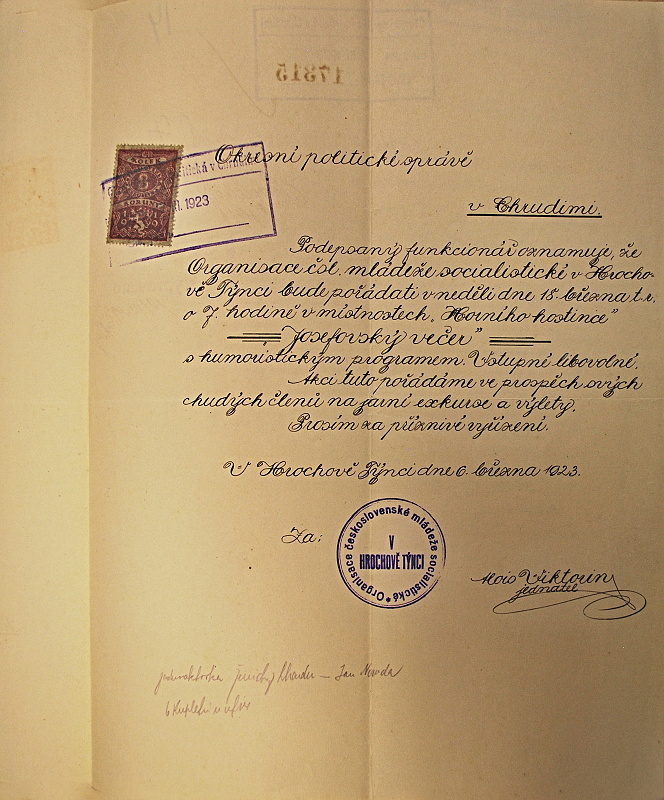 14
17315
Okresní politické správě
1923
v Chrudimi.
8
Podepsaný funkcionář oznamuje, že
Organisace čsl. mládeže socialistické v Hrocho-
vě Týnci bude pořádati v neděli dne 15. března t.r.
o 7. hodině v místnostech „Horního hostince"
„Josefovský večer"
s humoristickým programem. Vstupné libovolné.
Akci tuto pořádáme ve prospěch svých
chudých členů na jarní exkurse a výlety.
Prosím za příznivé vyřízení.
V Hrochově Týnci dne 6. března 1923.
Za:
Organisace československé mládeže socialistické
V
HROCHOVĚ TÝNCI
Alois Viktorin
jednatel
Jan
6